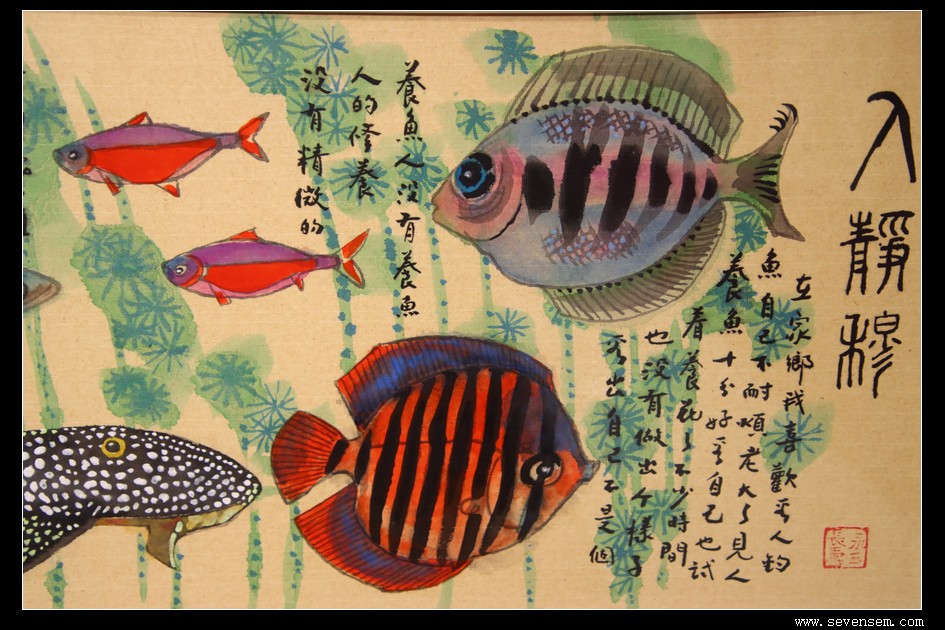 入靜穆
在家鄉我喜歡看人釣
魚自己不耐煩老大了見人
養魚十分好看自己也試
着養花了不少時間
也沒有做出个樣子
看出自己不是個
養魚人沒有養魚
人的修養
沒有精微的
www.sevensem.com